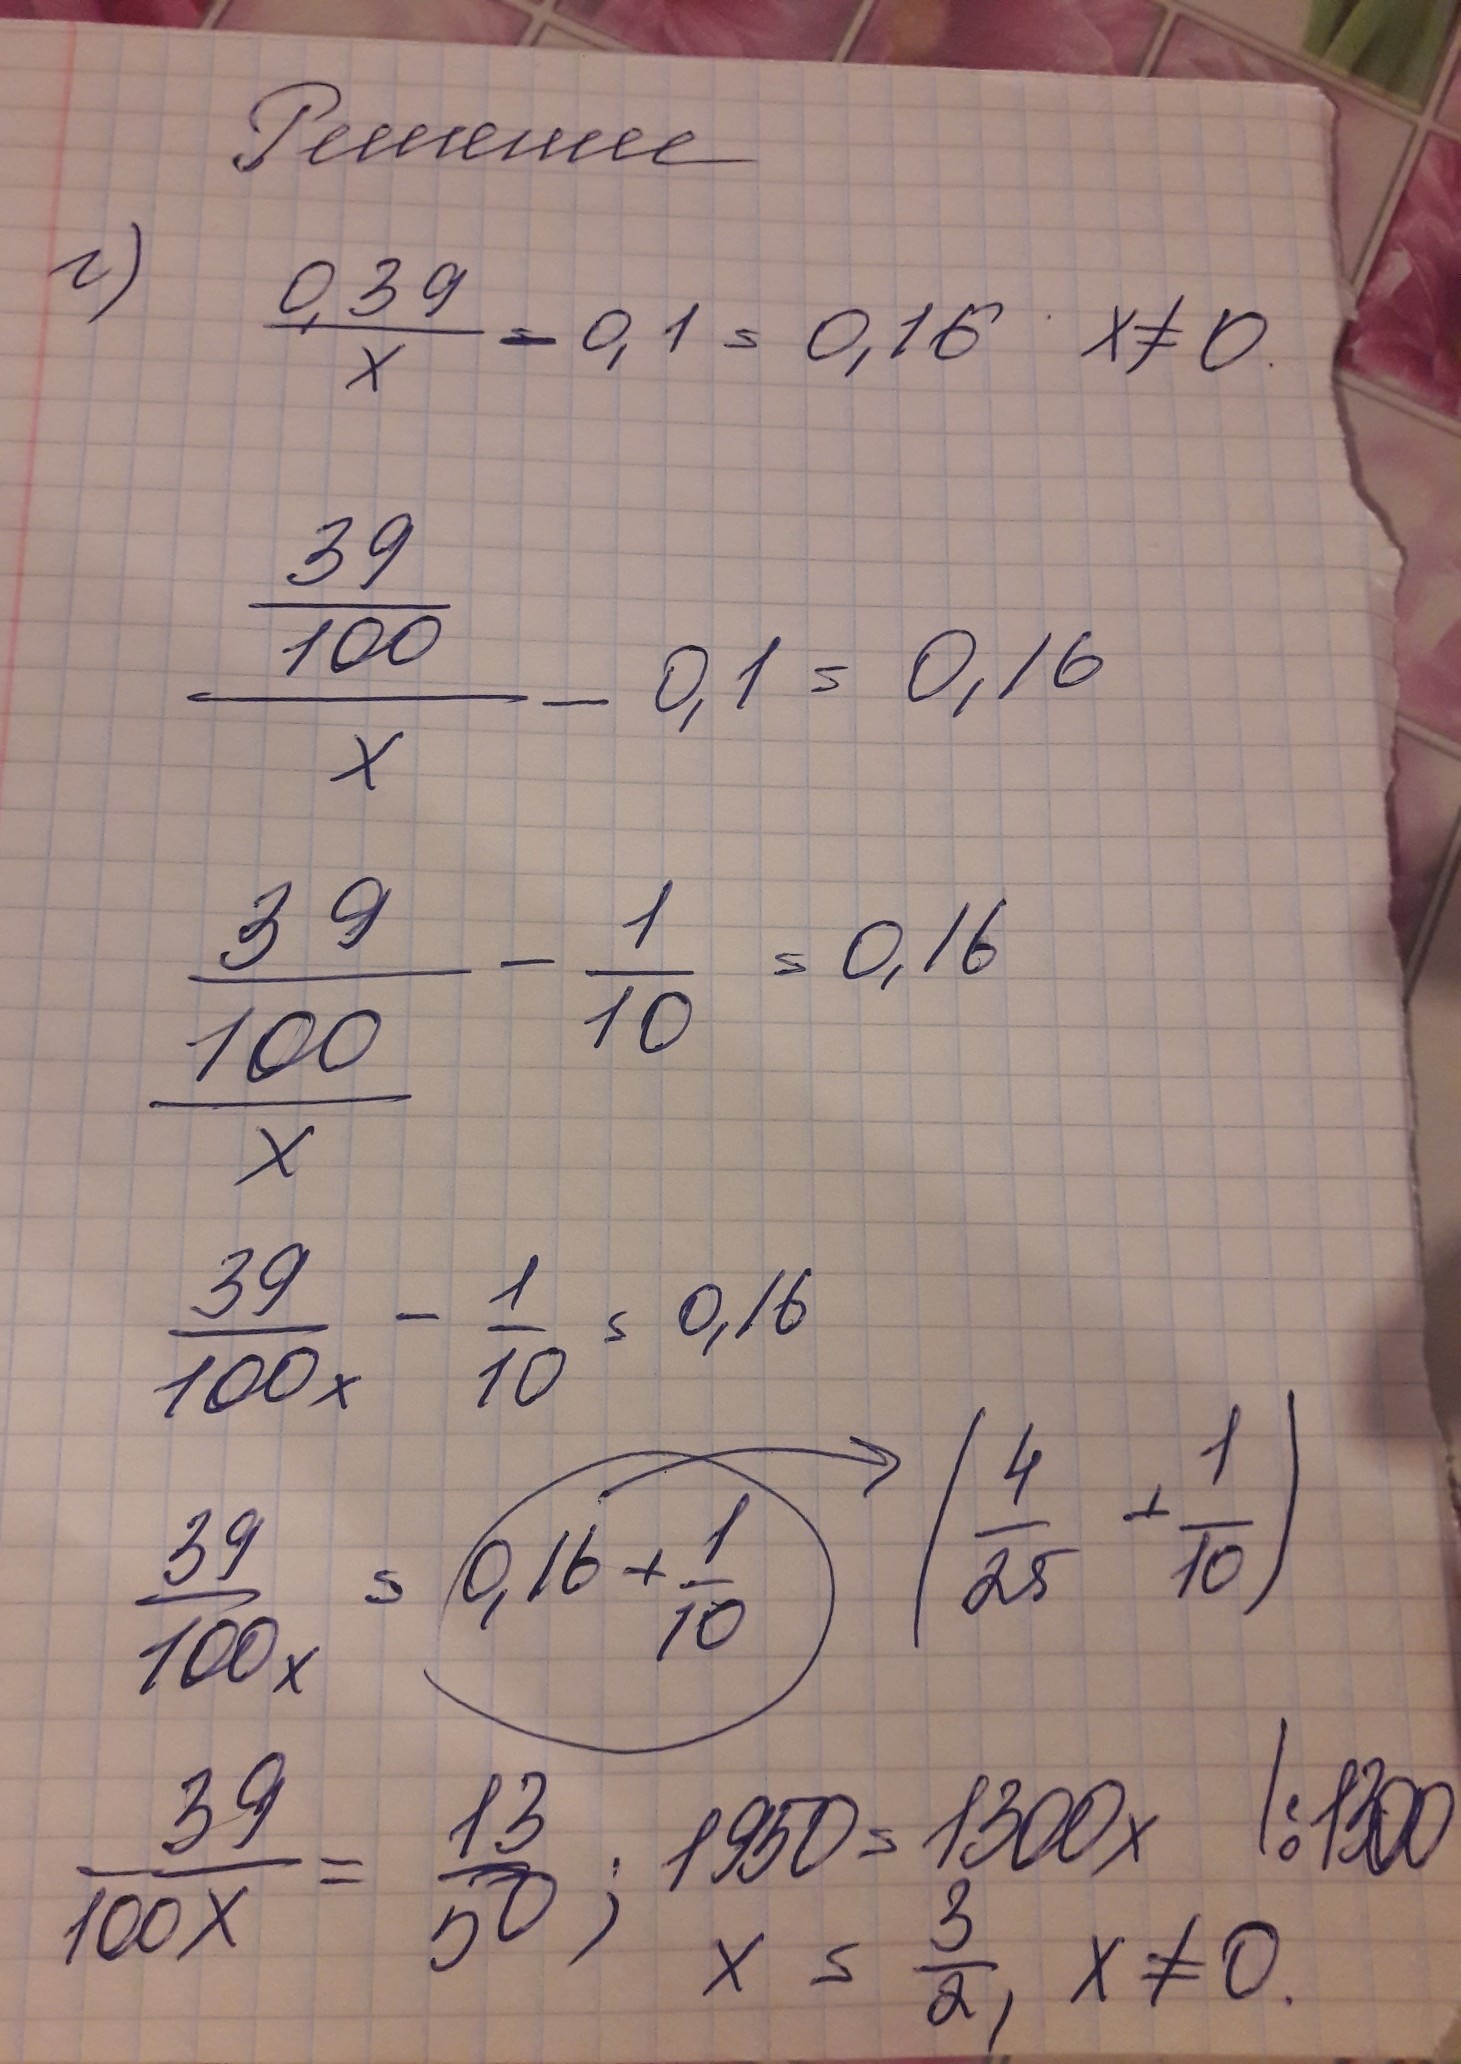 Решение
г) 0,39/x - 0,1 = 0,16 x≠0.
39/100/x - 0,1 = 0,16
39/100/x - 1/10 = 0,16
39/100x - 1/10 = 0,16
39/100x = 0,16 + 1/10 → (4/25 + 1/10)
39/100x = 13/50 ; 1950 = 1300x |:1300
x = 3/2, x≠0.